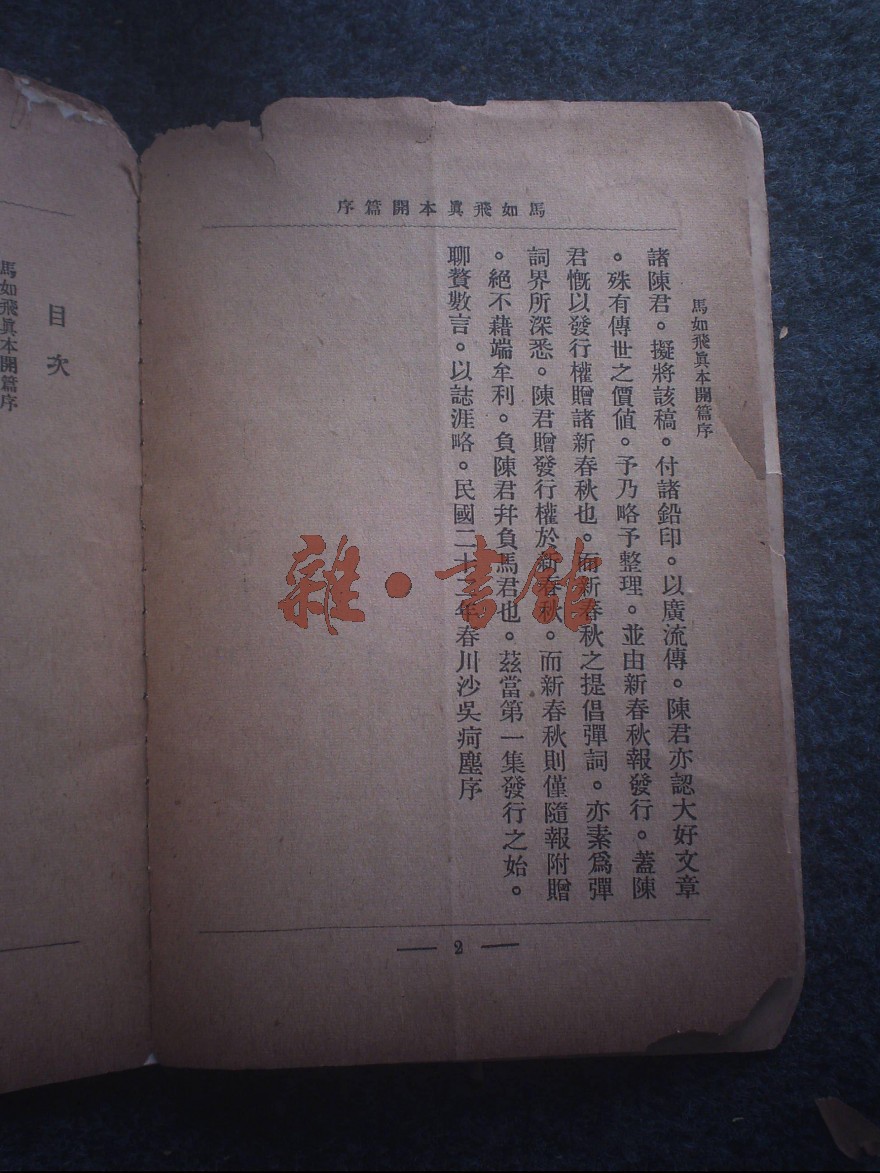 馬如飛眞本開篇序
馬如飛眞本開篇序
諸陳君。擬將該稿。付諸鉛印。以廣流傳。陳君亦認大好文章
。殊有傳世之價値。予乃略予整理。並由新春秋報發行。蓋陳
君慨以發行權贈諸新春秋也。而新春秋之提倡彈詞。亦素爲彈
詞界所深悉。陳君贈發行權於新春秋。而新春秋則僅隨報附贈
。絕不藉端牟利。負陳君幷負馬君也。茲當第一集發行之始。
聊贅數言。以誌涯略。民國二十三年春川沙吳疴塵序
2
馬如飛眞本開篇序
目次
雜·書館